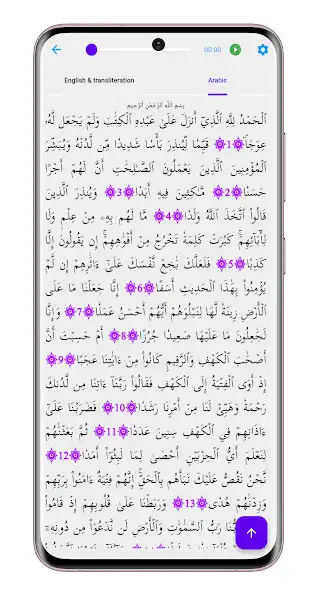 00:00
English & transliteration
Arabic
بِسْمِ ٱللَّهِ ٱلرَّحْمَٰنِ ٱلرَّحِيمِ
ٱلْحَمْدُ لِلَّهِ ٱلَّذِىٓ أَنزَلَ عَلَىٰ عَبْدِهِ ٱلْكِتَٰبَ وَلَمْ يَجْعَل لَّهُۥ
عِوَجَا ۜ ۞1۞ قَيِّمًا لِّيُنذِرَ بَأْسًا شَدِيدًا مِّن لَّدُنْهُ وَيُبَشِّرَ
ٱلْمُؤْمِنِينَ ٱلَّذِينَ يَعْمَلُونَ ٱلصَّٰلِحَٰتِ أَنَّ لَهُمْ أَجْرًا
حَسَنًا ۞2۞ مَّٰكِثِينَ فِيهِ أَبَدًا ۞3۞ وَيُنذِرَ ٱلَّذِينَ
قَالُوا۟ ٱتَّخَذَ ٱللَّهُ وَلَدًا ۞4۞ مَّا لَهُم بِهِۦ مِنْ عِلْمٍ وَلَا
لِءَابَآئِهِمْ ۚ كَبُرَتْ كَلِمَةً تَخْرُجُ مِنْ أَفْوَٰهِهِمْ ۚ إِن يَقُولُونَ إِلَّا
كَذِبًا ۞5۞ فَلَعَلَّكَ بَٰخِعٌ نَّفْسَكَ عَلَىٰٓ ءَاثَٰرِهِمْ إِن لَّمْ
يُؤْمِنُوا۟ بِهَٰذَا ٱلْحَدِيثِ أَسَفًا ۞6۞ إِنَّا جَعَلْنَا مَا عَلَى
ٱلْأَرْضِ زِينَةً لَّهَا لِنَبْلُوَهُمْ أَيُّهُمْ أَحْسَنُ عَمَلًا ۞7۞ وَإِنَّا
لَجَٰعِلُونَ مَا عَلَيْهَا صَعِيدًا جُرُزًا ۞8۞ أَمْ حَسِبْتَ أَنَّ
أَصْحَٰبَ ٱلْكَهْفِ وَٱلرَّقِيمِ كَانُوا۟ مِنْ ءَايَٰتِنَا عَجَبًا ۞9۞
إِذْ أَوَى ٱلْفِتْيَةُ إِلَى ٱلْكَهْفِ فَقَالُوا۟ رَبَّنَآ ءَاتِنَا مِن لَّدُنكَ
رَحْمَةً وَهَيِّئْ لَنَا مِنْ أَمْرِنَا رَشَدًا ۞10۞ فَضَرَبْنَا عَلَىٰٓ
ءَاذَانِهِمْ فِى ٱلْكَهْفِ سِنِينَ عَدَدًا ۞11۞ ثُمَّ بَعَثْنَٰهُمْ
لِنَعْلَمَ أَىُّ ٱلْحِزْبَيْنِ أَحْصَىٰ لِمَا لَبِثُوٓا۟ أَمَدًا ۞12۞
نَّحْنُ نَقُصُّ عَلَيْكَ نَبَأَهُم بِٱلْحَقِّ ۚ إِنَّهُمْ فِتْيَةٌ ءَامَنُوا۟ بِرَبِّهِمْ
وَزِدْنَٰهُمْ هُدًى ۞13۞ وَرَبَطْنَا عَلَىٰ قُلُوبِهِمْ إِذْ قَامُوا۟
رَبُّ ٱلسَّمَٰوَٰتِ وَٱلْأَرْضِ لَن نَّدْعُوَا۟ مِن دُونِهِۦٓ